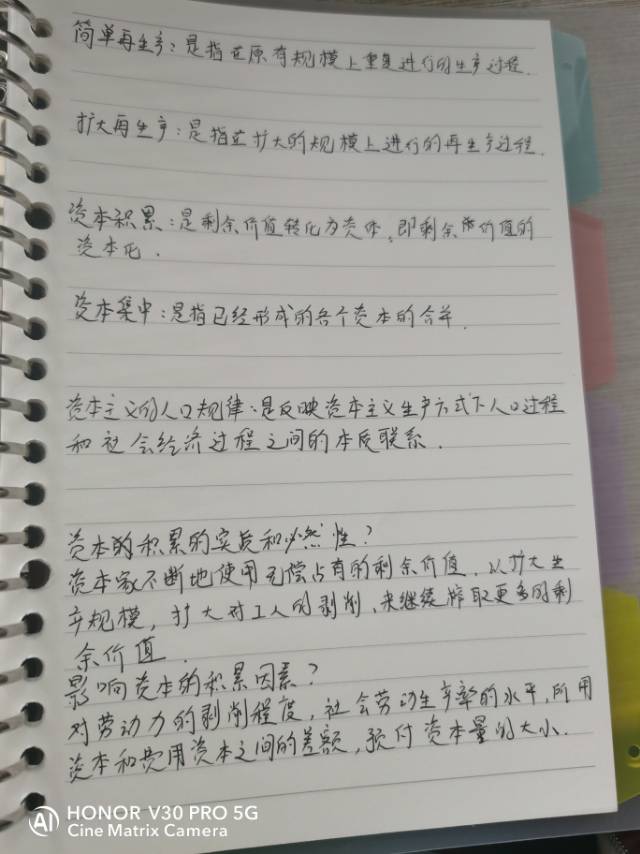 简单再生产：是指在原有规模上重复进行的生产过程.
扩大再生产：是指在扩大的规模上进行的再生产过程.
资本积累：是剩余价值转化为资本，即剩余价值的
资本化.
资本集中：是指已经形成的各个资本的合并.
资本主义的人口规律：是反映资本主义生产方式下人口过程
和社会经济过程之间的本质联系.
资本的积累的实质和必然性？
资本家不断地使用无偿占有的剩余价值，以扩大生
产规模，扩大对工人的剥削，来继续榨取更多的剩
余价值.
影响资本的积累因素？
对劳动力的剥削程度，社会劳动生产率的水平，所用
资本和费用资本之间的差额，预付资本量的大小.
AI HONOR V30 PRO 5G
Cine Matrix Camera